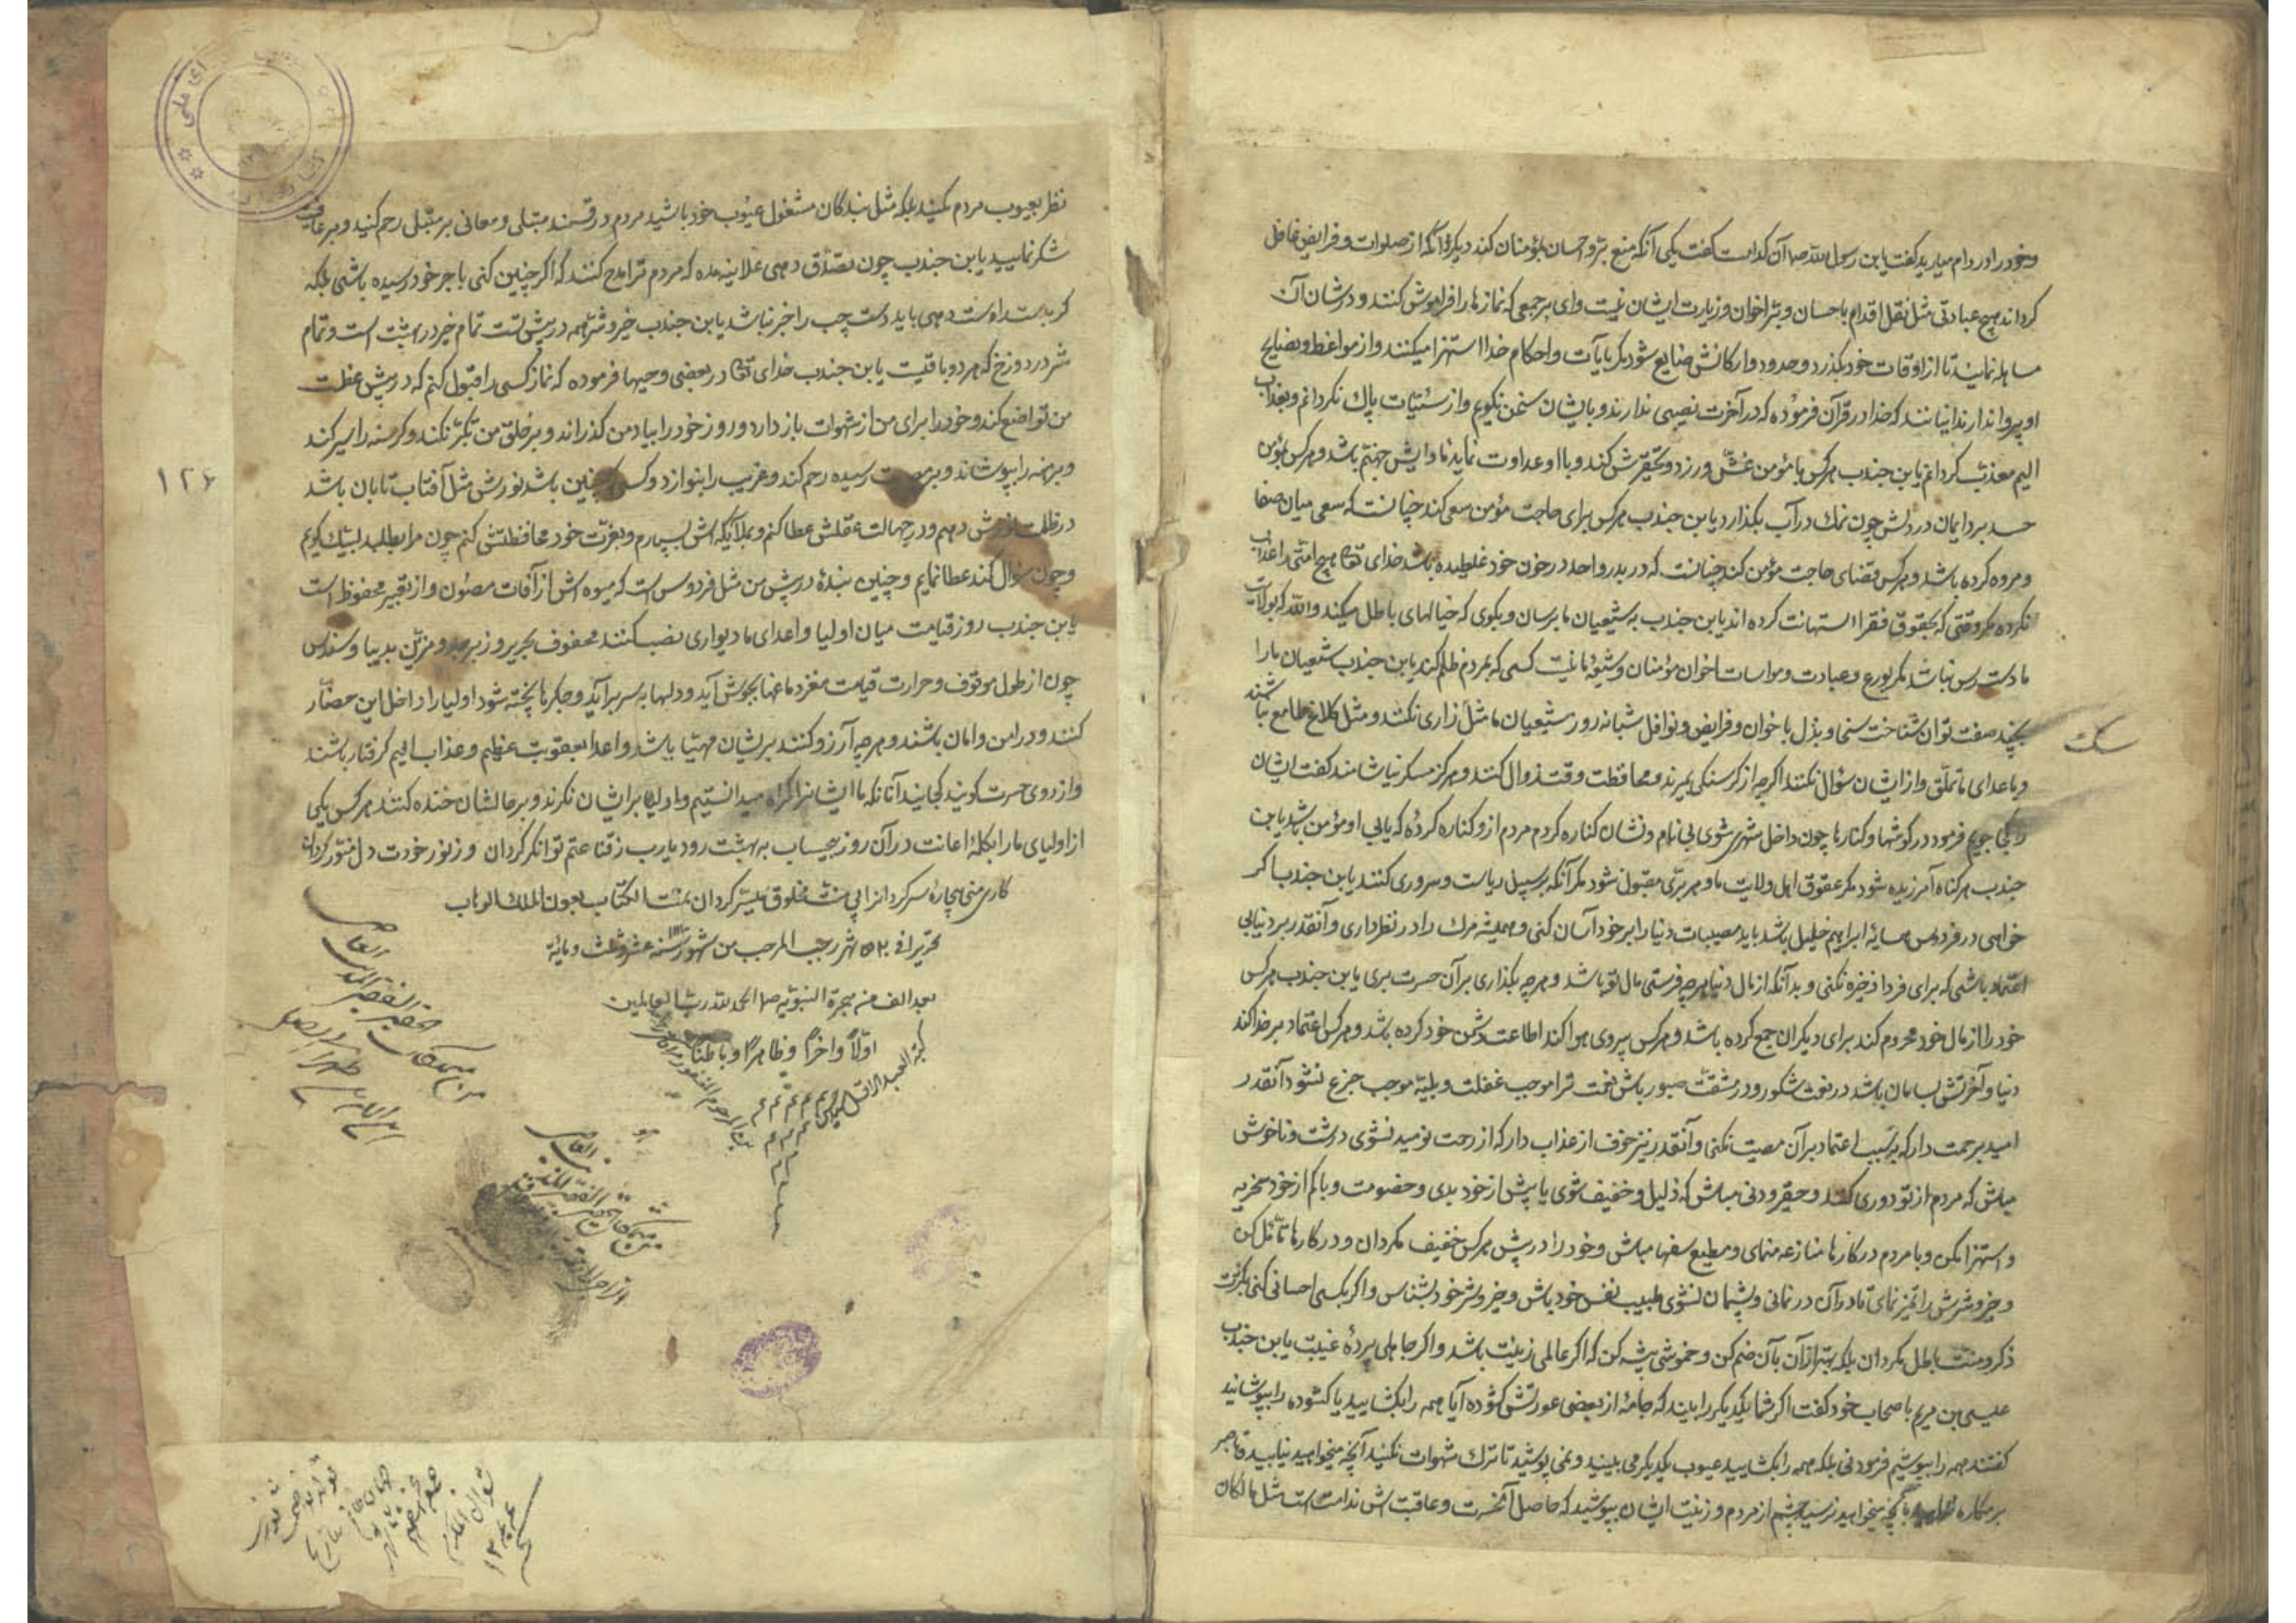 و خود را در دام میارید گفت یابن رسول الله ص آن کدامست گفت یکی آنکه منع بر و احسان بمؤمنان کند دیگر آنکه از صلوات و فرایض غافل
کرداند هیچ عبادتی مثل نقل اقدام باحسان و بر اخوان و زیارت ایشان نیست وای بر جمعی که نمازها را فراموش کنند و در شان آن
مساهله نمایند تا از اوقات خود بگذرد و حدود و ارکانش ضایع شود مکر بآیات و احکام خدا استهزا میکنند و از مواعظ و نصایح
او پروا ندارند اینانند که خدا در قرآن فرموده که در آخرت نصیبی ندارند و بایشان سخن نکویم و از سئیات پاک نکردانم و بعذاب
الیم معذب کردانم یابن جندب هرکس با مؤمن غش ورزد و تحقیرش کند و با او عداوت نماید ماوایش جهنم باشد و هرکس بمؤمن
حسد برد ایمان در دلش چون نمک در آب بکدازد یابن جندب هرکس برای حاجت مؤمن سعی کند چنانست که سعی میان صفا
و مروه کرده باشد و هرکس قضای حاجت مؤمن کند چنانست که در بدر و احد در خون خود غلطیده باشد خدای تعا هیچ امتی را عذاب
نکرده مکر وقتی که بحقوق فقرا استهانت کرده اند یابن جندب به شیعیان ما برسان و بکوی که خیالهای باطل میکند والله که بولایت
ما دست رس نباشد مکر بورع و عبادت و مواسات اخوان مؤمنان و شیعهٔ ما نیست کسی که بمردم ظلم کند یابن جندب شیعیان ما را
بچند صفت توان شناخت سخا و بذل باخوان و فرایض و نوافل شبانه روز شیعیان ما مثل زاری نکنند و مثل کلاغ طامع نباشند
سک
و با اعدای ما تملق و از ایشان سؤال نکنند اکرچه از کرسنکی بمیرند و محافظت وقت زوال کنند و هرکز مسکر نیاشامند کفت ایشان
را کجا جویم فرمود در کوشها و کنارها چون داخل شهری شوی بی نام و نشان کناره کردم مردم ازو کناره کرده که یابی او مؤمن باشد یابن
جندب هر کناه آمرزیده شود مکر عقوق اهل ولایت ما و هر بری مقبول شود مکر آنکه بر سبیل ریاست و سروری کنند یابن جندب اکر
خواهی در فردوس همسایهٔ ابراهیم خلیل باشد باید مصیبات دنیا را بر خود آسان کنی و همیشه مرک را در نظر داری و آنقدر بر دنیا بی
اعتماد باشی که برای فردا ذخیره نکنی و بدآنکه از مال دنیا هرچه فرستی مال تو باشد و هرچه بکذاری بر آن حسرت بری یابن جندب هرکس
خود را از مال خود محروم کند برای دیکران جمع کرده باشد و هرکس پیروی هوا کند اطاعت دشمن خود کرده باشد و هرکس اعتماد بر خدا کند
دنیا و آخرتش بسامان باشد در نعمت شکور و در مشقت صبور باش نعمت ترا موجب غفلت و بلیه موجب جزع نشود آنقدر
امید برحمت دار که بسبب اعتماد بر آن معصیت نکنی و آنقدر نیز خوف از عذاب دار که از رحمت نومید نشوی درشت و ناخوش
مباش که مردم از تو دوری کنند و حقیر و دنی مباش که ذلیل و خفیف شوی با پیش از خود بدی و خصومت و با کم از خود سخریه
و استهزا مکن و با مردم در کارها منازعه منمای و مطیع سفها مباش و خود را در پیش هرکس خفیف مکردان و در کارها تامل کن
و خیر و شرش را تمیز نمای تا در آن در نمانی و پشیمان نشوی طبیب نفس خود باش و خیر و شر خود بشناس و اکر بکسی احسانی کنی بکثرت
ذکر و منت باطل مکردان بلکه بهتر از آن بآن ضم کن و خموشی پیشه کن که اکر عالمی زینت باشد و اکر جاهلی پردهٔ غیبت یابن جندب
عیسی بن مریم باصحاب خود کفت اکر شما یکدیکر را ببیند که جامهٔ از بعضی عورتش کشوده آیا همه را بکشایید یا کشوده را بپوشانید
کفتند همه را بپوشیم فرمود نی بلکه همه را بکشایید عیوب یکدیکر می ببینید و نمی پوشید تا ترک شهوات نکنید آنچه میخواهید نیابید تا صبر
بر مکاره بآنچه میخواهید نرسید چشم از مردم و زینت ایشان بپوشید که حاصل آن حسرت و عاقبت اش ندامت است مثل مالکان
نظر بعیوب مردم مکنید بلکه مثل بندکان مشغول عیوب خود باشید مردم دو قسمند مبتلی و معافی بر مبتلی رحم کنید و بر عافیت
شکر نمایید یابن جندب چون تصدق دهی علانیه مده که مردم ترا مدح کنند که اکر چنین کنی باجر خود رسیده باشی بلکه
کر بدست راست دهی باید دست چپ را خبر نباشد یابن جندب خیر و شر همه در پیش تست تمام خیر در بهشت است و تمام
شر در دوزخ که هر دو باقیست یابن جندب خدای تعا در بعضی وحیها فرموده که نماز کسی را قبول کنم که در پیش عظمت
من تواضع کند و خود را برای من از شهوات باز دارد و روز خود را بیاد من کذراند و بر خلق من تکبر نکند و کرسنه را سیر کند
و برهنه را بپوشاند و بر مصیبت رسیده رحم کند و غریب را بنوازد و کسی که چنین باشد نورش مثل آفتاب تابان باشد
در ظلمت نورش دهم و در جهالت عقلش عطا کنم و بملائکه اش بسپارم و بعزت خود محافظتش کنم چون مرا بطلبد لبیک کویم
و چون سؤال کند عطا نمایم و چنین بندهٔ در پیش من مثل فردوس است که میوه اش از آفات مصئون و از تغییر محفوظ است
یابن جندب روز قیامت میان اولیا و اعدای ما دیواری نصب کنند محفوف بحریر و زبرجد و مزین بدیبا و سندس
چون از طول موقوف و حرارت قیامت مغز دماغها بجوش آید و دلها به سر برآید و جکرها پخته شود اولیا را داخل این حصار
کنند و در امن و امان باشند و هرچه آرزو کنند بر ایشان مهیا باشد و اعدا بعقوبت عظیم و عذاب الیم کرفتار باشند
و از روی حسرت کویند کجایند آنانکه ما ایشانرا کمراه میدانستیم و اولیا بر ایشان نکرند و بر حالشان خنده کنند هرکس یکی
از اولیای ما را بکلمهٔ اعانت در آن روز بیحساب به بهشت رود یا رب ز قناعتم توانکر کردان و ز نور خودت دل منور کردان
کاری من بیچارهٔ سرکردانرا بی منت مخلوق میسر کردان تمت الکتاب بعون الملک الوهاب
تحریرا فی ۲۰ شهر رجب المرجب من شهور سنه عشر و ثلث و مائة
بعد الف من هجرة النبویه ص الحمد لله رب العالمین
اولا و اخرا و ظاهرا و باطنا
کتبه العبد
بن المرحوم المغفور
۱۲۶